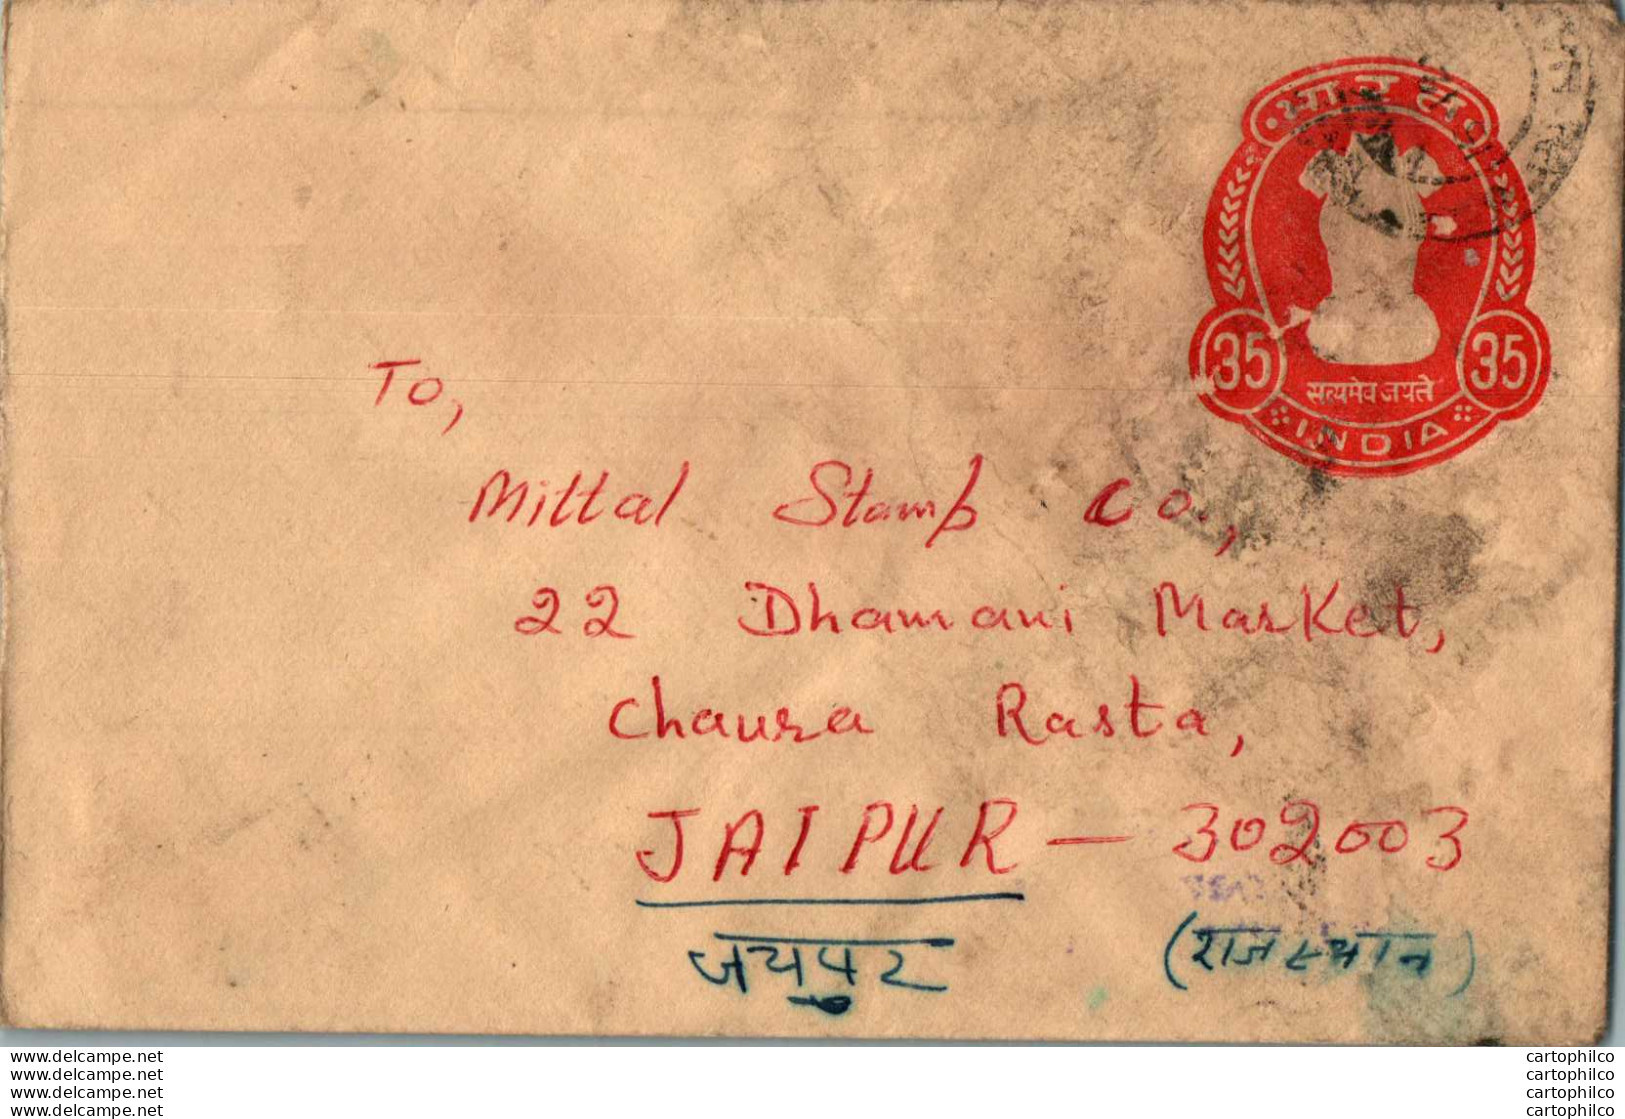 भारत
35 35
सत्यमेव जयते
INDIA
To,
Mittal Stamp Co.,
22 Dhamani Market,
Chaura Rasta,
JAIPUR - 302003
जयपुर (राजस्थान)
www.delcampe.net cartophilco
www.delcampe.net cartophilco
www.delcampe.net cartophilco
www.delcampe.net cartophilco